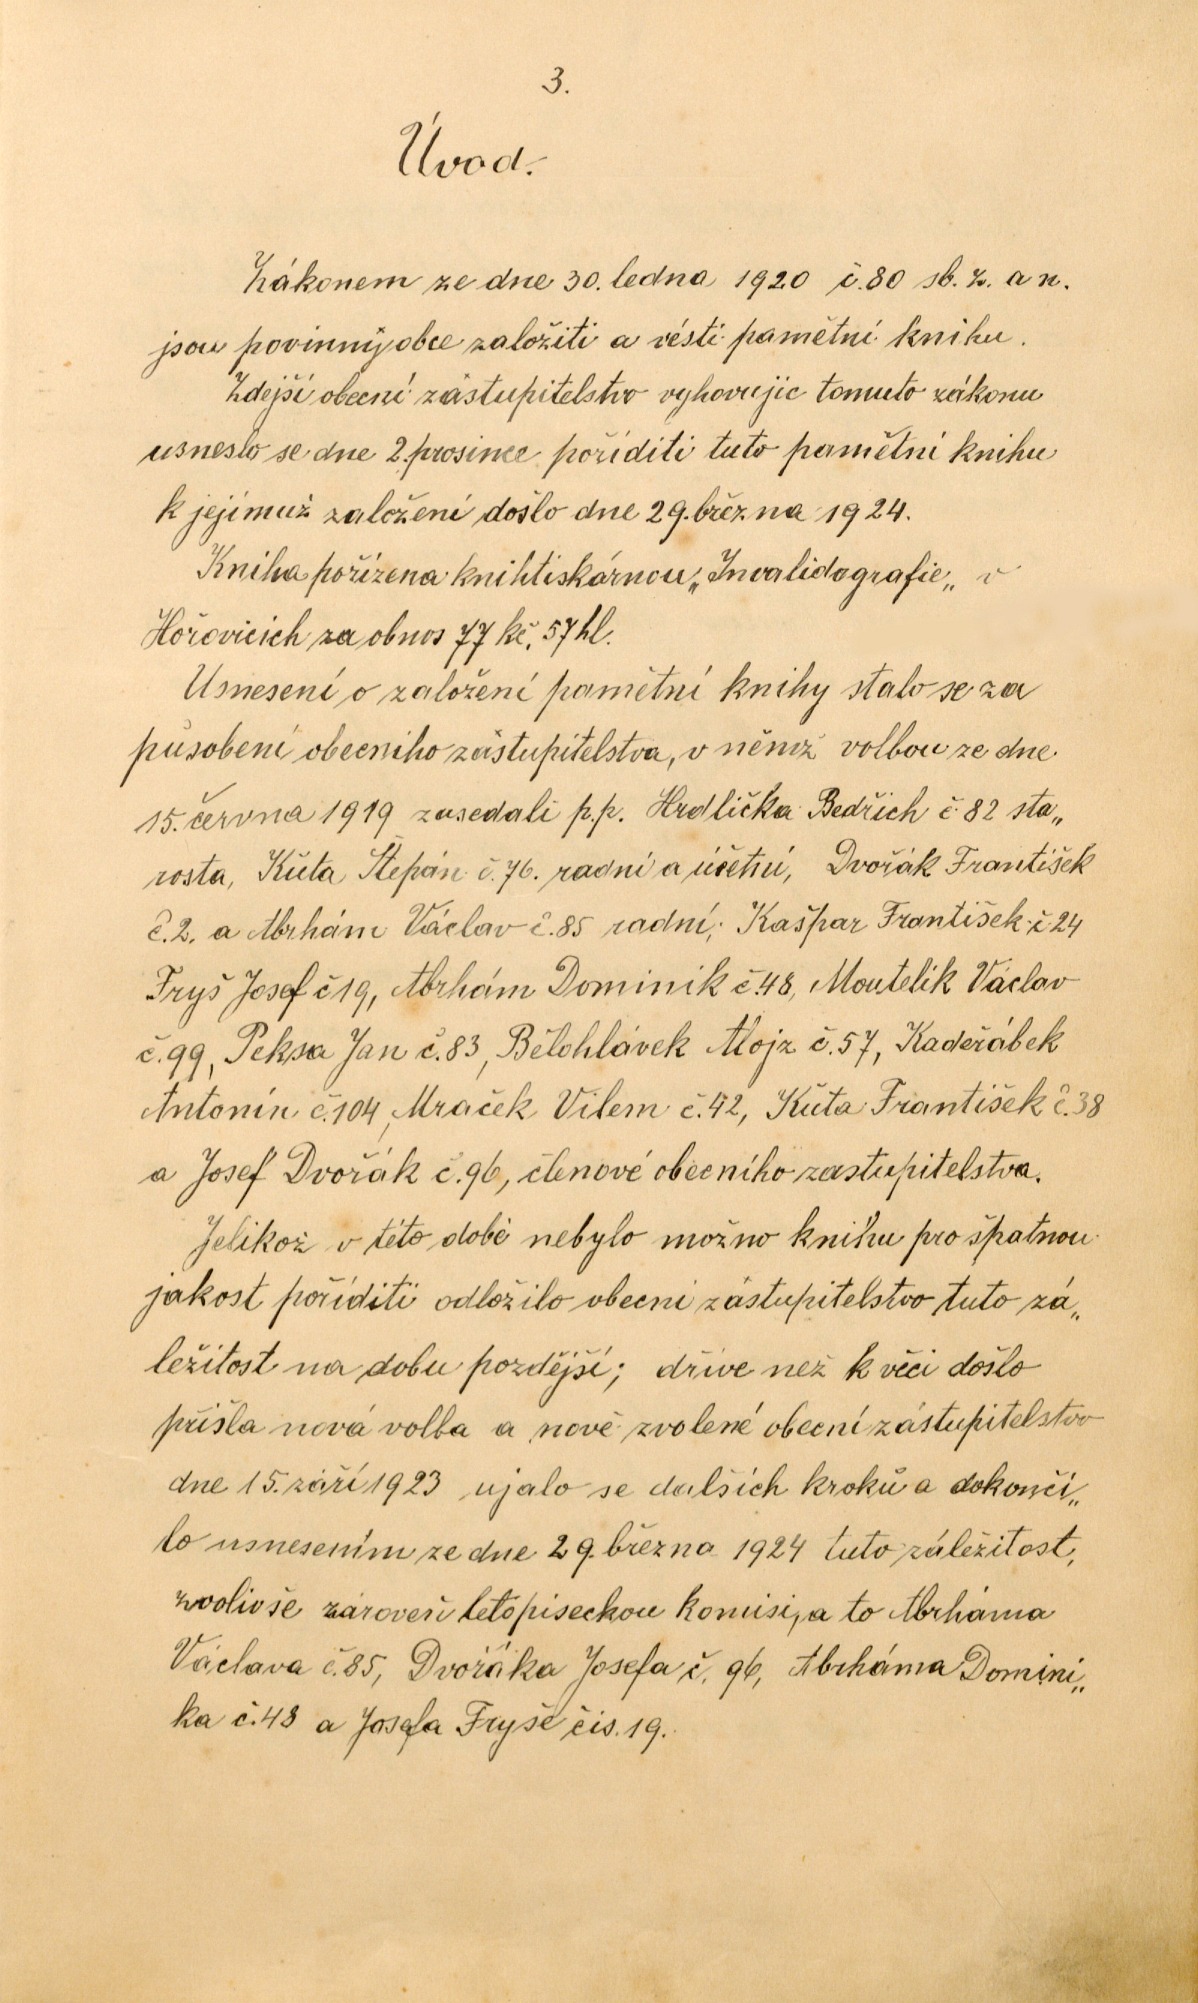 3.
Úvod.
Zákonem ze dne 30. ledna 1920 č. 80 sb. z. a n.
jsou povinny obce založiti a vésti pamětní knihu.
Zdejší obecní zástupitelstvo vyhovujíc tomuto zákonu
usneslo se dne 2. prosince poříditi tuto pamětní knihu
k jejímuž založení došlo dne 29. března 1924.
Kniha pořízena knihtiskárnou „Invalidografie„ v
Hořovicích za obnos 77 kč. 57 hl.
Usnesení o založení pamětní knihy stalo se za
působení obecního zástupitelstva, v němž volbou ze dne
15. června 1919 zasedali p.p. Hrdlička Bedřich č 82 sta„
rosta, Kůta Štepán č. 76. radní a účetní, Dvořák František
č. 2. a Abrhám Václav č. 85 radní; Kašpar František č 24
Fryš Josef č 19, Abrhám Dominik č 48, Moutelík Václav
č. 99, Peksa Jan č. 83, Bělohlávek Alojz č. 57, Kadeřábek
Antonín č. 104, Mraček Vilem č. 42, Kůta František č. 38
a Josef Dvořák č. 96, členové obecního zastupitelstva.
Jelikož v této době nebylo možno knihu pro špatnou
jakost poříditi odložilo obecní zástupitelstvo tuto zá„
ležitost na dobu pozdější; dříve než k věci došlo
přišla nová volba a nově zvolené obecní zástupitelstvo
dne 15. září 1923 ujalo se dalších kroků a dokonči„
lo usnesením ze dne 29. března 1924 tuto záležitost,
zvolivše zároveň letopiseckou komisi, a to Abrháma
Václava č. 85, Dvořáka Josefa č. 96, Abrháma Domini„
ka č. 48 a Josefa Fryše čis. 19.